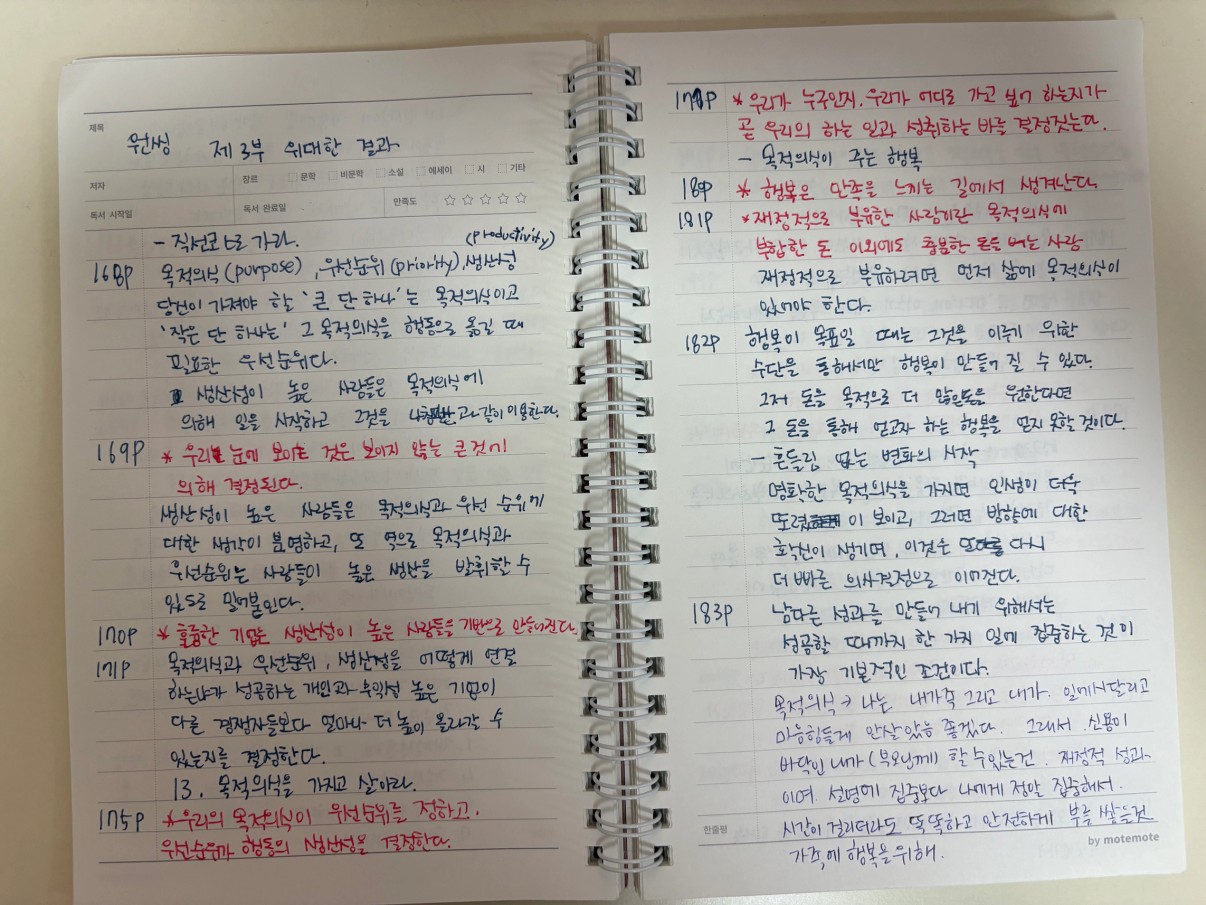 제목
원씽 제 3부 위대한 결과
저자
장르 문학 비문학 소설 에세이 시 기타
독서 시작일
독서 완료일
만족도 ☆☆☆☆☆
- 직선코스로 가라.
(productivity)
168p 목적의식 (purpose), 우선순위 (priority), 생산성
당신이 가져야 할 '큰 단 하나'는 목적의식이고
'작은 단 하나는' 그 목적의식을 행동으로 옮길 때
필요한 우선순위다.
생산성이 높은 사람들은 목적의식에
의해 일을 시작하고 그것을 나침반과 같이 이용한다.
169p * 우리 눈에 보이는 것은 보이지 않는 큰 것에
의해 결정된다.
생산성이 높은 사람들은 목적의식과 우선 순위에
대한 생각이 분명하고, 또 역으로 목적의식과
우선순위는 사람들이 높은 생산을 발휘할 수
있도로 밀어붙인다.
170p * 훌륭한 기업은 생산성이 높은 사람들을 기반으로 만들어진다.
171p 목적의식과 우선순위, 생산성을 어떻게 연결
하는냐가 성공하는 개인과 수익성 높은 기업이
다른 경쟁자들보다 얼마나 더 높이 올라갈 수
있는지를 결정한다.
13. 목적의식을 가지고 살아라.
175p * 우리의 목적의식이 우선순위를 정하고,
우선순위가 행동의 생산성을 결정한다.
* 우리가 누구인지, 우리가 어디로 가고 싶어 하는지가
곧 우리의 하는 일과 성취하는 바를 결정짓는다.
- 목적의식이 주는 행복
* 행복은 만족을 느끼는 길에서 생겨난다
181p * 재정적으로 부유한 사람이란 목적의식에
부합한 돈 이외에도 충분한 돈을 버는 사람
재정적으로 부유하려면 먼저 삶에 목적의식이
있어야 한다.
182p 행복이 목표일 때는 그것을 이루기 위한
수단을 통해서만 행복이 만들어 질 수 있다.
그저 돈을 목적으로 더 많은돈을 원한다면
그 돈을 통해 얻고자 하는 행복을 얻지 못할 것이다.
- 흔들림 없는 변화의 시작
명확한 목적의식을 가지면 인생이 더욱
또렷이 보이고, 그러면 방향에 대한
확신이 생기며, 이것은 다시
더 빠른 의사결정으로 이어진다.
183p 남다른 성과를 만들어 내기 위해서는
성공할 때까지 한 가지 일에 집중하는 것이
가장 기본적인 조건이다.
목적의식 → 나는 내가족 그리고 내가. 일에시달리고
마음힘들게 안살았음 좋겠다. 그래서 신용이
바닥인 내가 (부모님께) 할 수있는건. 재정적 성과
이며. 집중보다 나에게 정말 집중해서.
시간이 걸리더라도 똑똑하고 안전하게 부를 쌓는것
가족에 행복을위해.
한줄평
by motemote